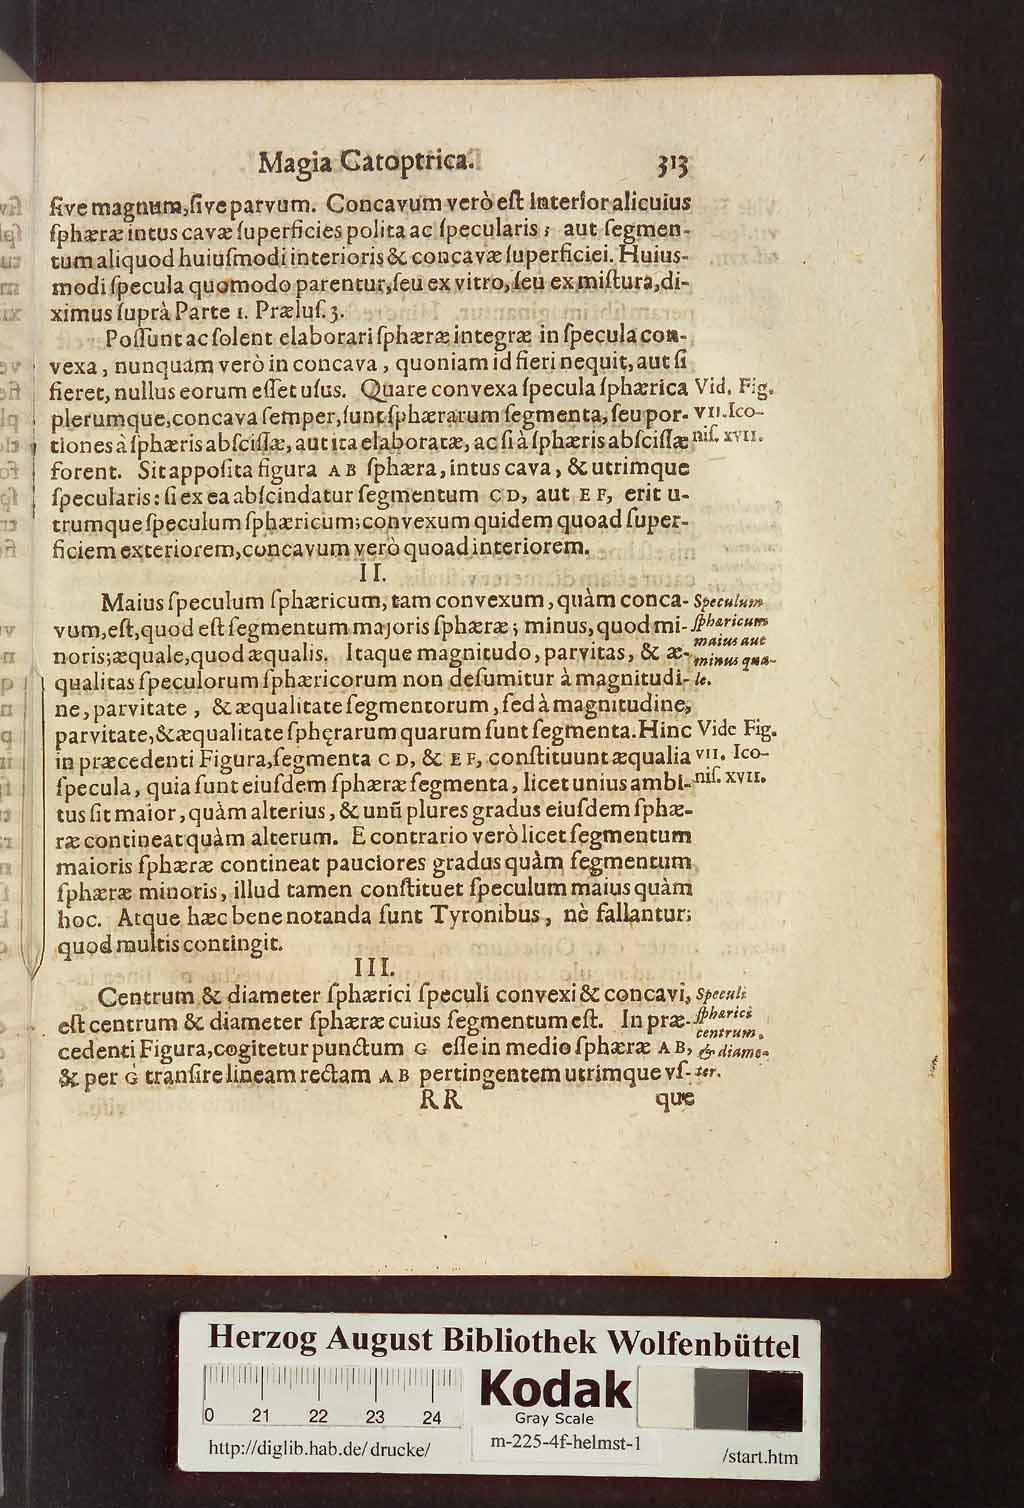 Magia Catoptrica. 313
sive magnum, sive parvum. Concavum verò est interior alicuius
sphæræ intus cavæ superficies polita ac specularis; aut segmen-
tum aliquod huiusmodi interioris & concavæ superficiei. Huius-
modi specula quomodo parentur, seu ex vitro, seu ex mistura, di-
ximus suprà Parte 1. Prælus. 3.
Possunt ac solent elaborari sphæræ integræ in specula con-
vexa, nunquam verò in concava, quoniam id fieri nequit, aut si
fieret, nullus eorum esset usus. Quare convexa specula sphærica
plerumque, concava semper, sunt sphærarum segmenta, seu por-
tiones à sphæris abscissæ, aut ita elaboratæ, ac si à sphæris abscissæ
forent. Sit apposita figura AB sphæra, intus cava, & utrimque
specularis: si ex ea abscindatur segmentum CD, aut EF, erit u-
trumque speculum sphæricum; convexum quidem quoad super-
ficiem exteriorem, concavum verò quoad interiorem.
Vid. Fig.
VII. Ico-
nis. XVII.
II.
Maius speculum sphæricum, tam convexum, quàm conca-
vum, est, quod est segmentum majoris sphæræ; minus, quod mi-
noris; æquale, quod æqualis. Itaque magnitudo, parvitas, & æ-
qualitas speculorum sphæricorum non desumitur à magnitudi-
ne, parvitate, & æqualitate segmentorum, sed à magnitudine,
parvitate, & æqualitate sphęrarum quarum sunt segmenta. Hinc
in præcedenti Figura, segmenta CD, & EF, constituunt æqualia
specula, quia sunt eiusdem sphæræ segmenta, licet unius ambi-
tus sit maior, quàm alterius, & unū plures gradus eiusdem sphæ-
ræ contineat quàm alterum. E contrario verò licet segmentum
maioris sphæræ contineat pauciores gradus quàm segmentum
sphæræ minoris, illud tamen constituet speculum maius quàm
hoc. Atque hæc bene notanda sunt Tyronibus, nè fallantur;
quod multis contingit.
Speculum
sphæricum
maius aut
minus qua-
le.
Vide Fig.
VII. Ico-
nis. XVII.
III.
Centrum & diameter sphærici speculi convexi & concavi,
est centrum & diameter sphæræ cuius segmentum est. In præ-
cedenti Figura, cogitetur punctum G esse in medio sphæræ AB,
& per G transire lineam rectam AB pertingentem utrimque vs-
Speculi
sphærici
centrum,
& diame-
ter.
RR que
Herzog August Bibliothek Wolfenbüttel
0 21 22 23 24
Kodak
Gray Scale
http://diglib.hab.de/drucke/
m-225-4f-helmst-1
/start.htm